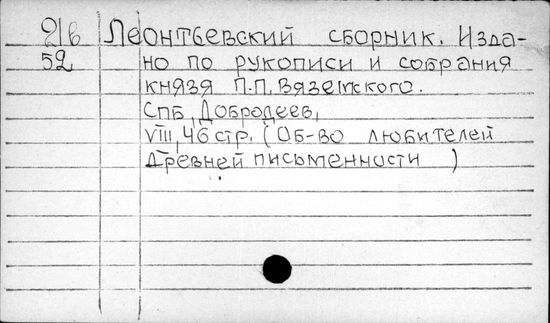 21б Леонтьевский сборник. Изда-
52 но по рукописи и собрания
князя П.П.Вяземского.
Спб, Добродеев,
VIII, 46 стр. (Об-во любителей
древней письменности )